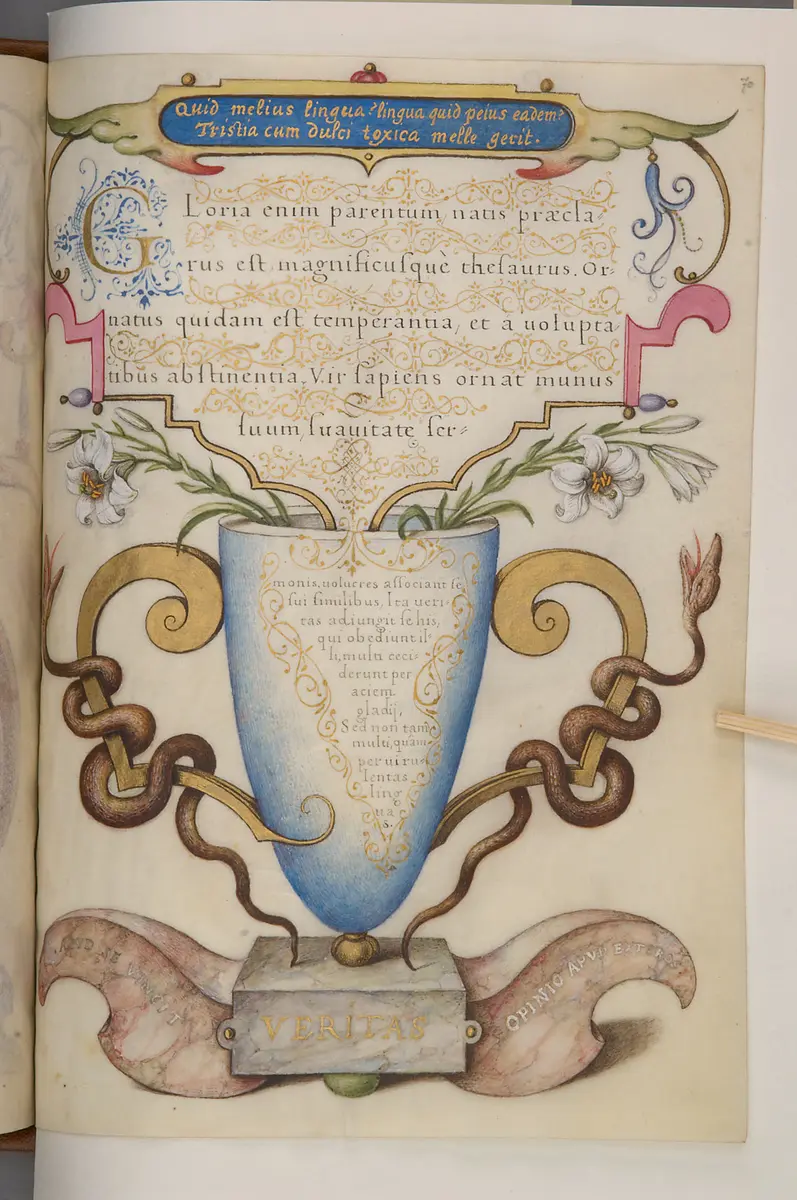 70
Quid melius lingua? lingua quid peius eadem?
Tristia cum dulci toxica melle gerit.
Gloria enim parentum natis præcla-
rus est, magnificusquè thesaurus. Or-
natus quidam est temperantia, et à uolupta-
tibus abstinentia. Vir sapiens ornat munus
suum, suauitate ser-
monis, uolucres associant se
sui similibus, Ita ueri-
tas adiungit se his,
qui obediunt il-
li, multi ceci-
derunt per
aciem
gladij,
Sed non tam
multi, quàm
per uiru-
lentas
ling
ua
s.
VINCIT
OPINIO APVD EXTER
VERITAS